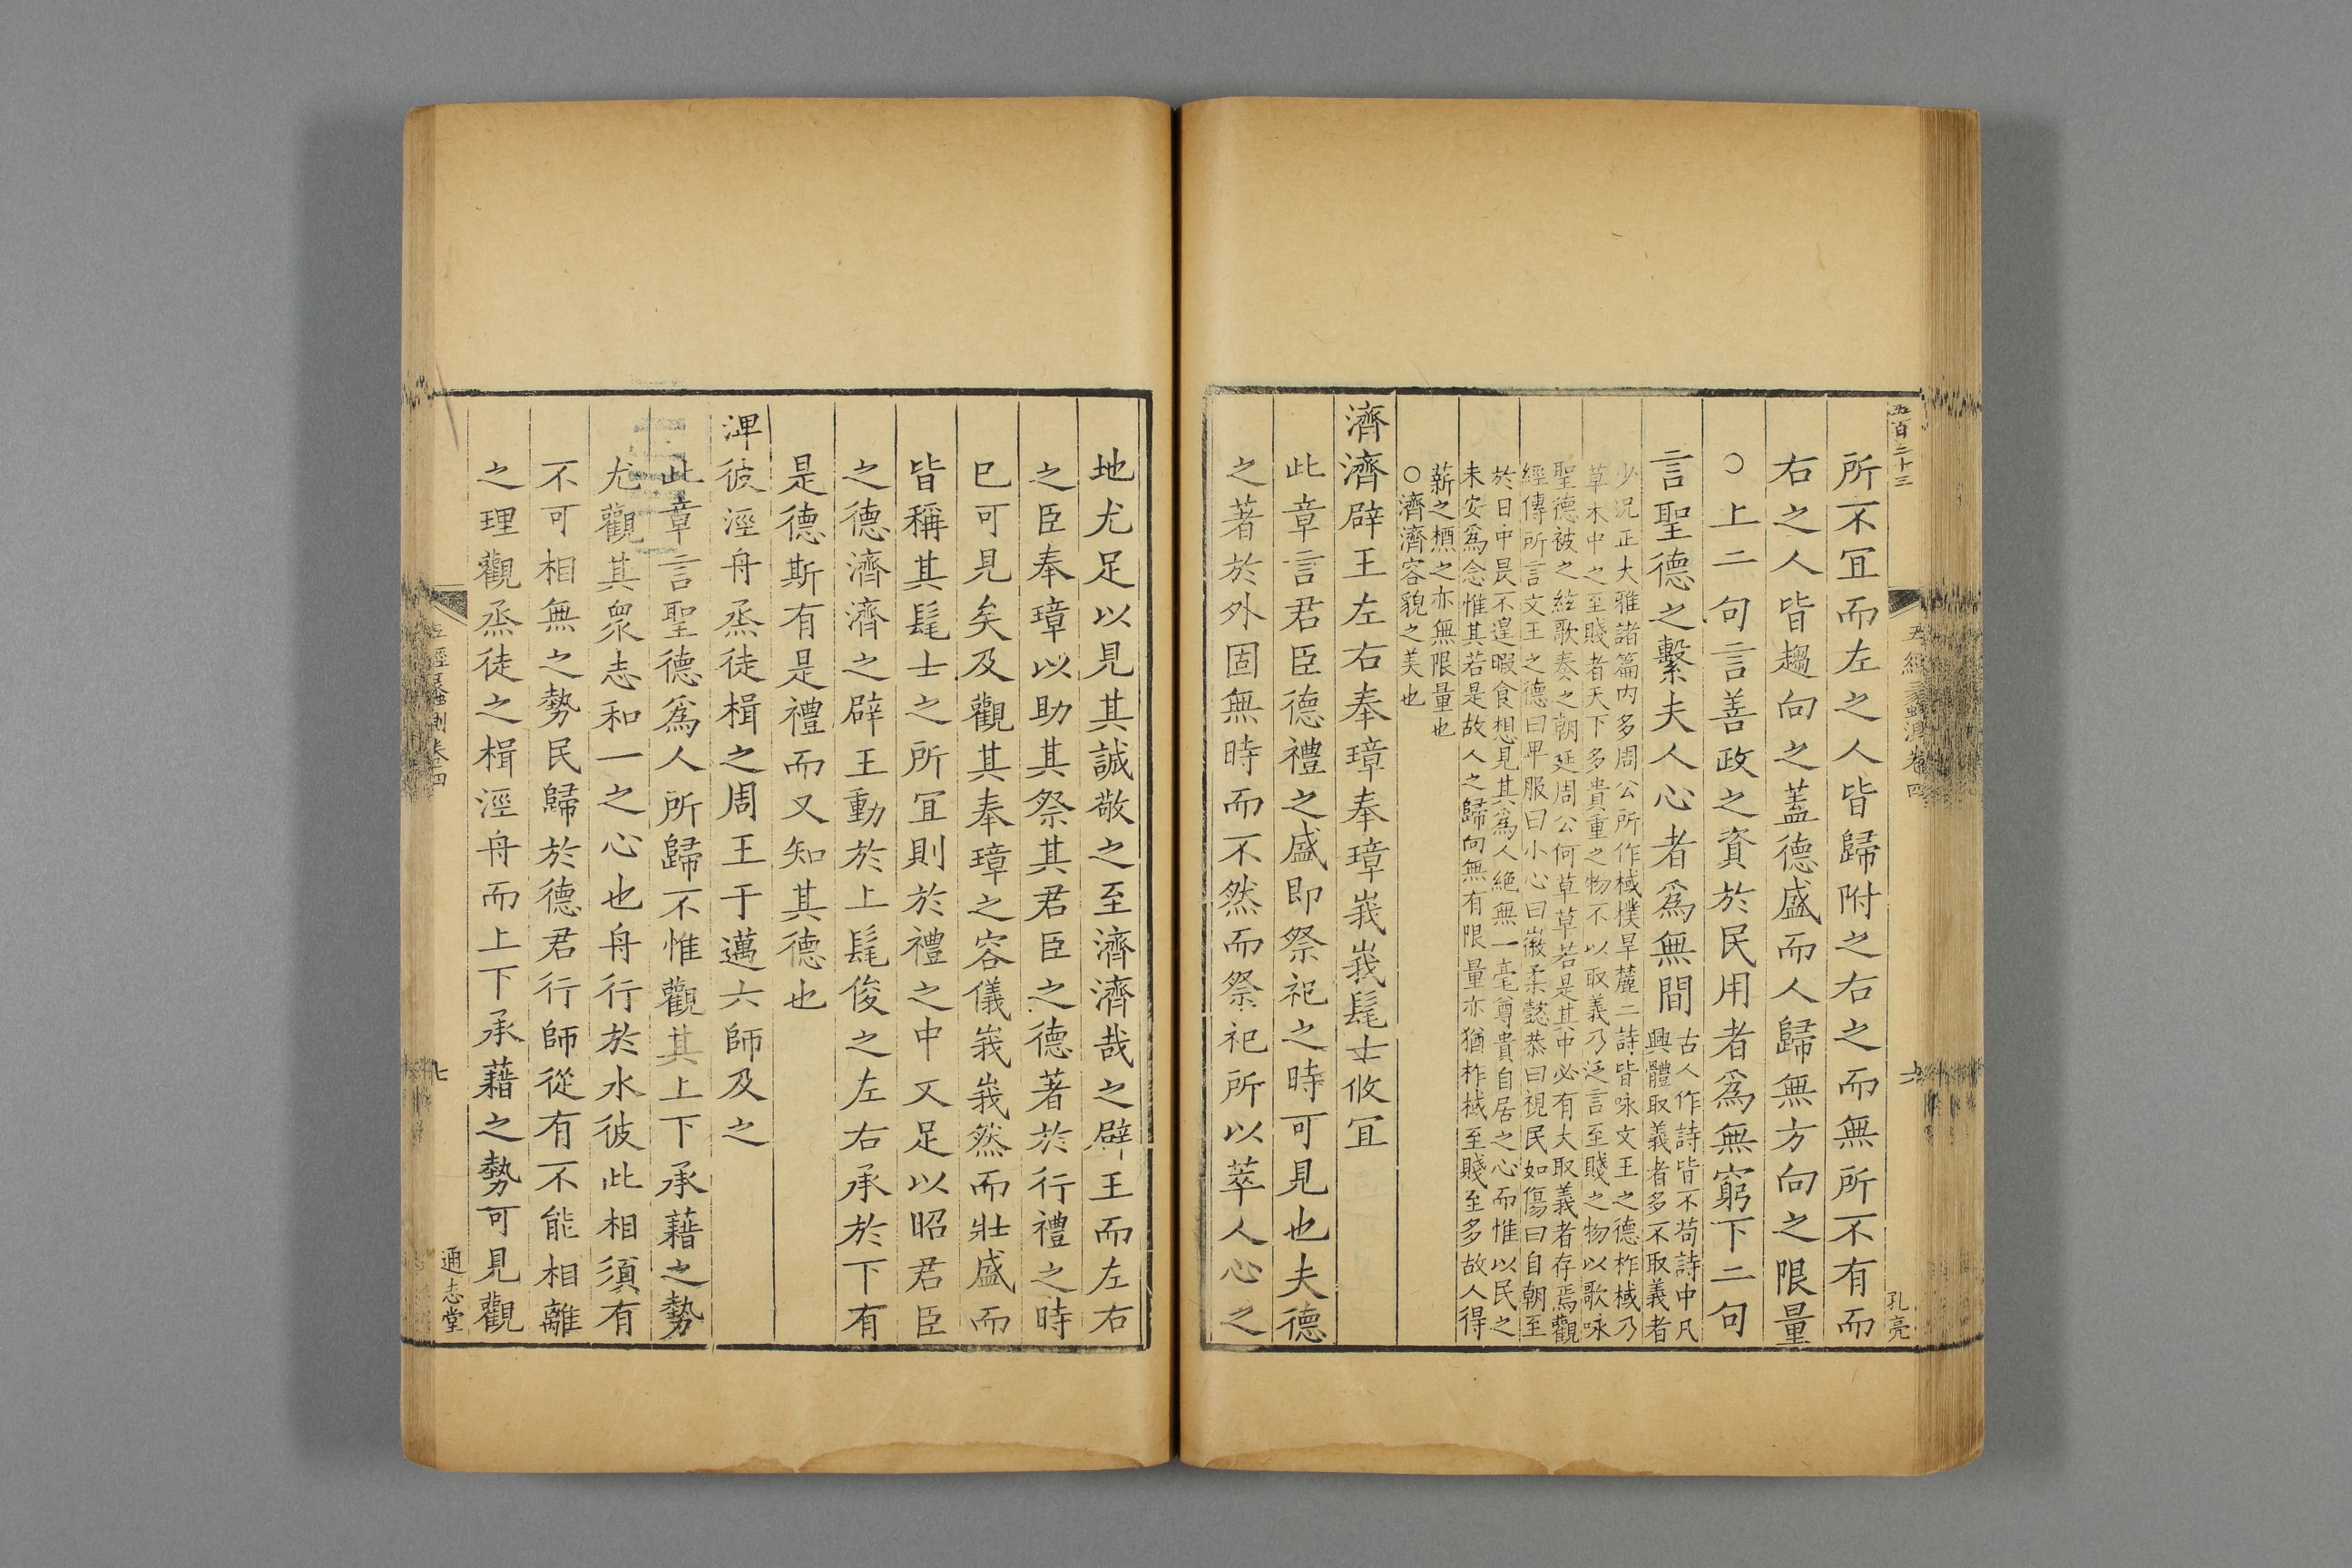 五百二十三
五經蠡測卷四
七
孔亮
所不宜而左之人皆歸附之右之而無所不有而
右之人皆趨向之蓋德盛而人歸無方向之限量
○上二句言善政之資於民用者為無窮下二句
言聖德之繫夫人心者爲無間
古人作詩皆不苟詩中凡
興體取義者多不取義者
少況正大雅諸篇内多周公所作棫樸旱麓二詩皆咏文王之德柞棫乃
草木中之至賤者天下多貴重之物不以取義乃泛言至賤之物以歌咏
聖德被之絃歌奏之朝廷周公何草草若是其中必有大取義者存焉觀
經傳所言文王之德曰卑服曰小心曰徽柔懿恭曰視民如傷曰自朝至
於日中昃不遑暇食想見其爲人絶無一毫尊貴自居之心而惟以民之
未安爲念惟其若是故人之歸向無有限量亦猶柞棫至賤至多故人得
薪之槱之亦無限量也
○濟濟容貌之美也
濟濟辟王左右奉璋奉璋峩峩髦士攸宜
此章言君臣德禮之盛即祭祀之時可見也夫德
之著於外固無時而不然而祭祀所以萃人心之
地尤足以見其誠敬之至濟濟哉之辟王而左右
之臣奉璋以助其祭其君臣之德著於行禮之時
已可見矣及觀其奉璋之容儀峩峩然而壯盛而
皆稱其髦士之所宜則於禮之中又足以昭君臣
之德濟濟之辟王動於上髦俊之左右承於下有
是德斯有是禮而又知其德也
淠彼涇舟烝徒楫之周王于邁六師及之
此章言聖德爲人所歸不惟觀其上下承藉之勢
尤觀其衆志和一之心也舟行於水彼此相須有
不可相無之勢民歸於德君行師從有不能相離
之理觀烝徒之楫涇舟而上下承藉之勢可見觀
五經蠡測卷四
七
通志堂